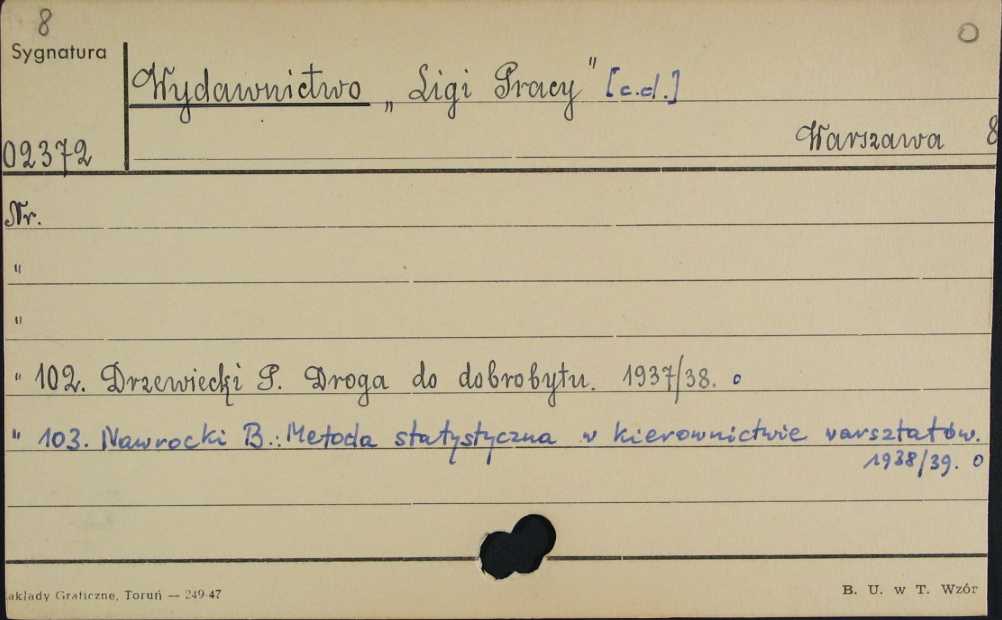 8
O
Sygnatura
Wydawnictwo „Ligi Pracy" [c.d.]
Warszawa 8
02372
Nr.
"
"
" 102. Drzewiecki P. Droga do dobrobytu. 1937/38. o
" 103. Nawrocki B.: Metoda statystyczna w kierownictwie warsztatów.
1938/39. o
akłady Graficzne, Toruń — 249-47
B. U. w T. Wzór